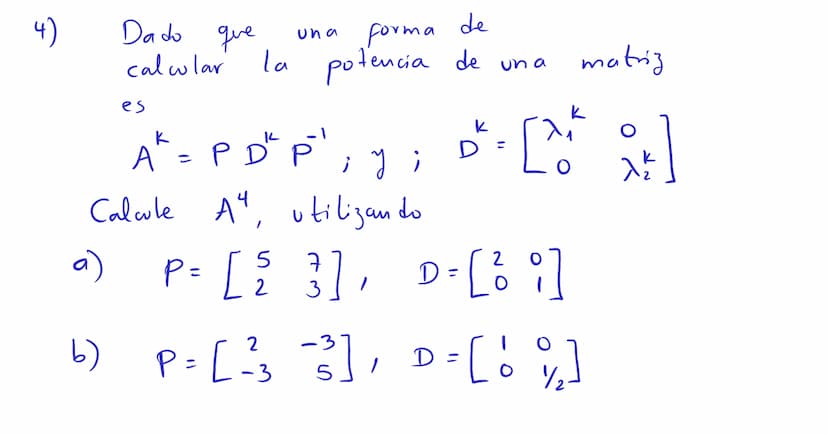 4) Dado que una forma de
calcular la potencia de una matriz
es
A^k = P D^k P^-1 ; y ; D^k = [λ₁^k 0
0 λ₂^k]
Calcule A^4, utilizando
a) P = [5 7
2 3] , D = [2 0
0 1]
b) P = [2 -3
-3 5] , D = [1 0
0 1/2]